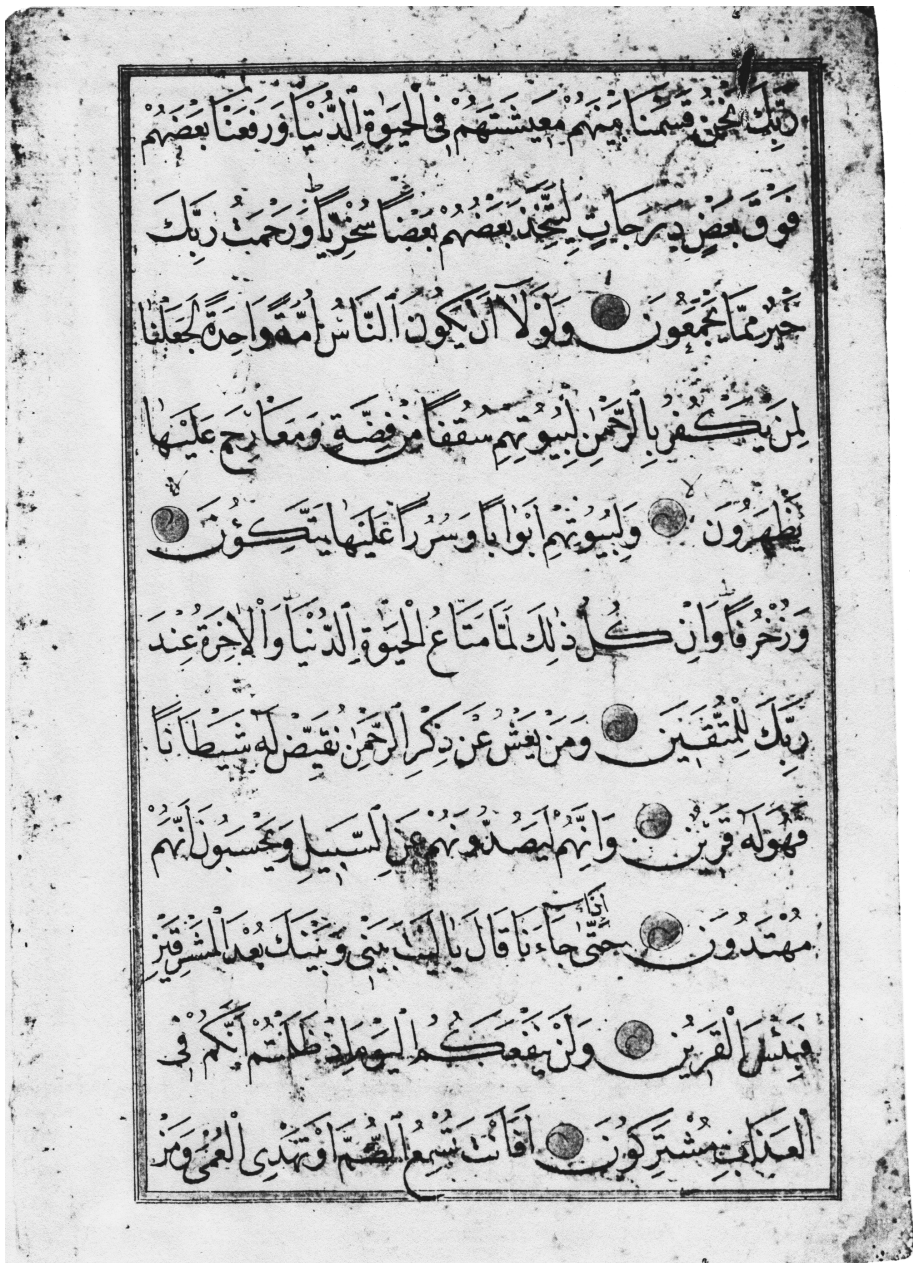 رَبِّكَ نَحْنُ قَسَمْنَا بَيْنَهُمْ مَعِيشَتَهُمْ فِي الْحَيٰوةِ الدُّنْيَا وَرَفَعْنَا بَعْضَهُمْ
فَوْقَ بَعْضٍ دَرَجَاتٍ لِيَتَّخِذَ بَعْضُهُمْ بَعْضًا سُخْرِيًّا وَرَحْمَتُ رَبِّكَ
خَيْرٌ مِمَّا يَجْمَعُونَ وَلَوْلَآ اَنْ يَكُونَ النَّاسُ اُمَّةً وَاحِدَةً لَجَعَلْنَا
لِمَنْ يَكْفُرُ بِالرَّحْمٰنِ لِبُيُوتِهِمْ سُقُفًا مِنْ فِضَّةٍ وَمَعَارِجَ عَلَيْهَا
يَظْهَرُونَ وَلِبُيُوتِهِمْ اَبْوَابًا وَسُرُرًا عَلَيْهَا يَتَّكِؤُنَ
وَزُخْرُفًا وَاِنْ كُلُّ ذٰلِكَ لَمَّا مَتَاعُ الْحَيٰوةِ الدُّنْيَا وَالْاٰخِرَةُ عِنْدَ
رَبِّكَ لِلْمُتَّقِينَ وَمَنْ يَعْشُ عَنْ ذِكْرِ الرَّحْمٰنِ نُقَيِّضْ لَهُ شَيْطَانًا
فَهُوَ لَهُ قَرِينٌ وَاِنَّهُمْ لَيَصُدُّونَهُمْ عَنِ السَّبِيلِ وَيَحْسَبُونَ اَنَّهُمْ
مُهْتَدُونَ حَتّٰى اِذَا جَاءَنَا قَالَ يَا لَيْتَ بَيْنِي وَبَيْنَكَ بُعْدَ الْمَشْرِقَيْنِ
فَبِئْسَ الْقَرِينُ وَلَنْ يَنْفَعَكُمُ الْيَوْمَ اِذْ ظَلَمْتُمْ اَنَّكُمْ فِي
الْعَذَابِ مُشْتَرِكُونَ اَفَاَنْتَ تُسْمِعُ الصُّمَّ اَوْ تَهْدِي الْعُمْيَ وَمَنْ